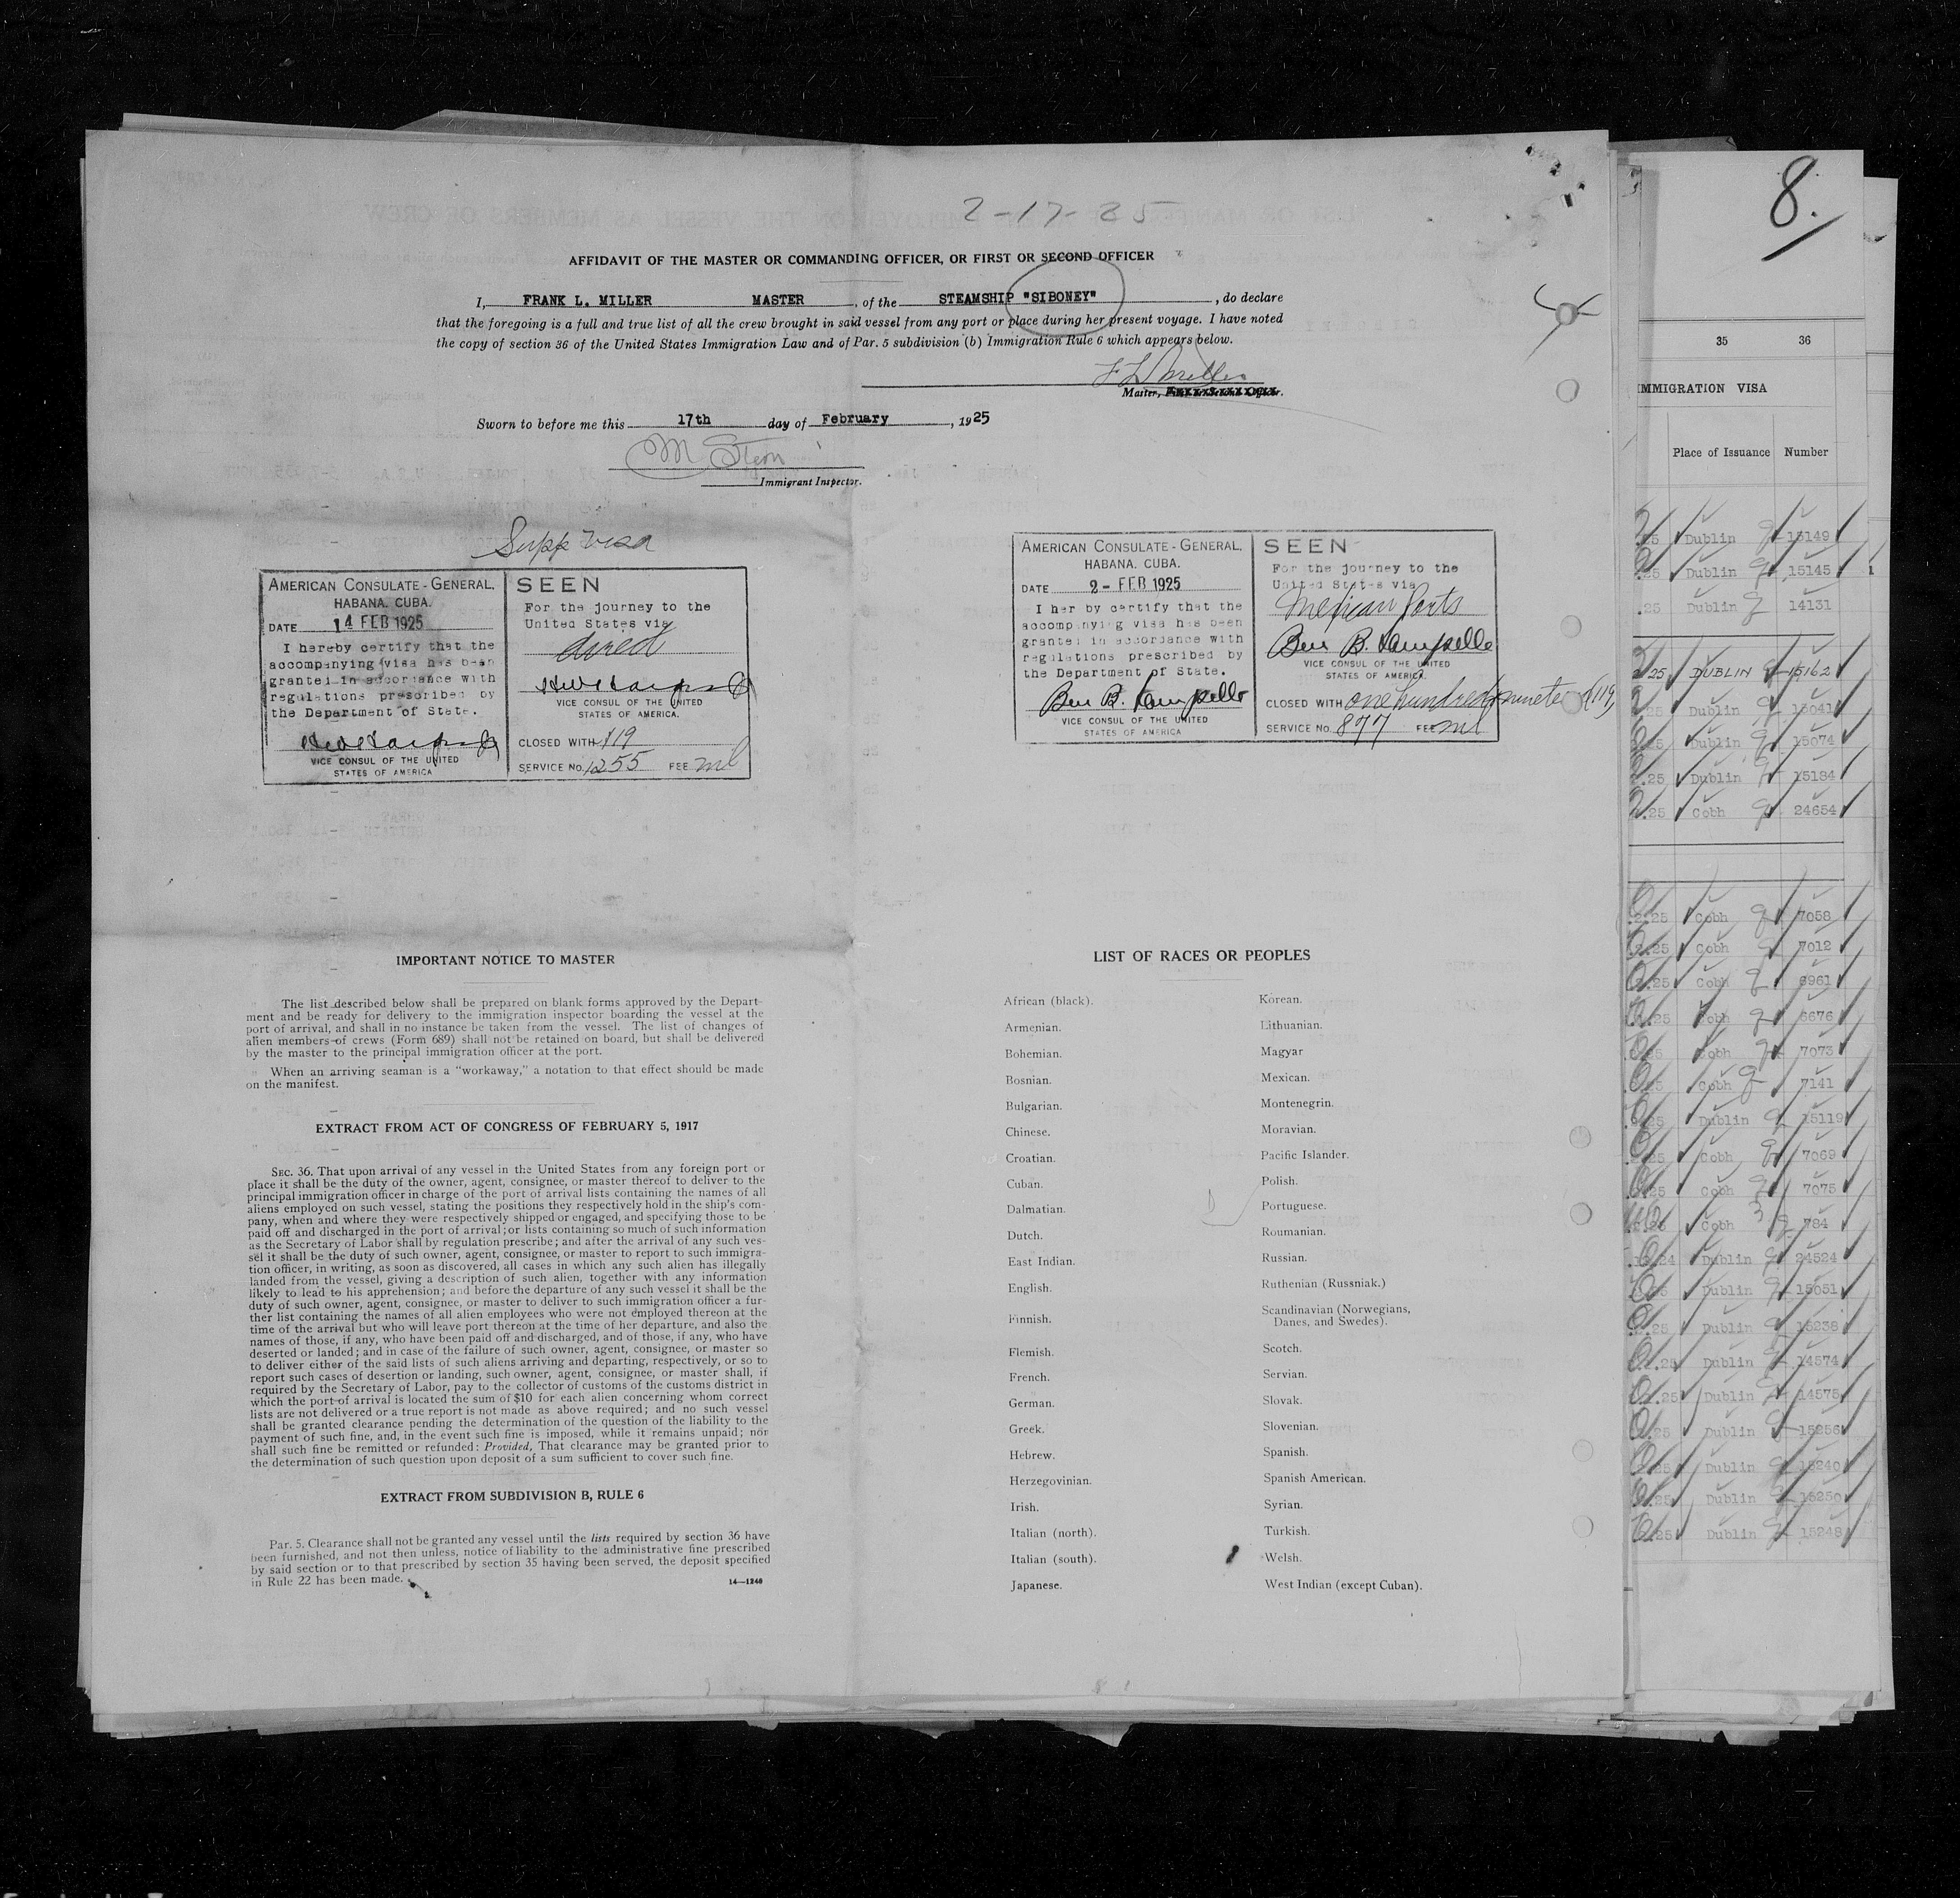 2-17-25
AFFIDAVIT OF THE MASTER OR COMMANDING OFFICER, OR FIRST OR SECOND OFFICER
I, FRANK L. MILLER MASTER, of the STEAMSHIP "SIBONEY", do declare
that the foregoing is a full and true list of all the crew brought in said vessel from any port or place during her present voyage. I have noted
the copy of section 36 of the United States Immigration Law and of Par. 5 subdivision (b) Immigration Rule 6 which appears below.
F L Miller
Master,
Sworn to before me this 17th day of February, 1925
M Stern
Immigrant Inspector.
Supp Visa
AMERICAN CONSULATE-GENERAL,
HABANA. CUBA.
DATE 14 FEB 1925
I hereby certify that the
accompanying visa has been
granted in accordance with
regulations prescribed by
the Department of State.
VICE CONSUL OF THE UNITED
STATES OF AMERICA
SEEN
For the journey to the
United States via
direct
VICE CONSUL OF THE UNITED
STATES OF AMERICA.
CLOSED WITH 119
SERVICE No. 1255 FEE nil
AMERICAN CONSULATE-GENERAL,
HABANA. CUBA.
DATE 2- FEB 1925
I her by certify that the
accompanying visa has been
granted in accordance with
regulations prescribed by
the Department of State.
Ben B.
VICE CONSUL OF THE UNITED
STATES OF AMERICA
SEEN
For the journey to the
United States via
Mexican Ports
Ben B.
VICE CONSUL OF THE UNITED
STATES OF AMERICA.
CLOSED WITH one hundred nineteen (119)
SERVICE No. 877 FEE nil
IMPORTANT NOTICE TO MASTER
The list described below shall be prepared on blank forms approved by the Depart-
ment and be ready for delivery to the immigration inspector boarding the vessel at the
port of arrival, and shall in no instance be taken from the vessel. The list of changes of
alien members of crews (Form 689) shall not be retained on board, but shall be delivered
by the master to the principal immigration officer at the port.
When an arriving seaman is a "workaway," a notation to that effect should be made
on the manifest.
EXTRACT FROM ACT OF CONGRESS OF FEBRUARY 5, 1917
SEC. 36. That upon arrival of any vessel in the United States from any foreign port or
place it shall be the duty of the owner, agent, consignee, or master thereof to deliver to the
principal immigration officer in charge of the port of arrival lists containing the names of all
aliens employed on such vessel, stating the positions they respectively hold in the ship's com-
pany, when and where they were respectively shipped or engaged, and specifying those to be
paid off and discharged in the port of arrival; or lists containing so much of such information
as the Secretary of Labor shall by regulation prescribe; and after the arrival of any such ves-
sel it shall be the duty of such owner, agent, consignee, or master to report to such immigra-
tion officer, in writing, as soon as discovered, all cases in which any such alien has illegally
landed from the vessel, giving a description of such alien, together with any information
likely to lead to his apprehension; and before the departure of any such vessel it shall be the
duty of such owner, agent, consignee, or master to deliver to such immigration officer a fur-
ther list containing the names of all alien employees who were not employed thereon at the
time of the arrival but who will leave port thereon at the time of her departure, and also the
names of those, if any, who have been paid off and discharged, and of those, if any, who have
deserted or landed; and in case of the failure of such owner, agent, consignee, or master so
to deliver either of the said lists of such aliens arriving and departing, respectively, or so to
report such cases of desertion or landing, such owner, agent, consignee, or master shall, if
required by the Secretary of Labor, pay to the collector of customs of the customs district in
which the port of arrival is located the sum of $10 for each alien concerning whom correct
lists are not delivered or a true report is not made as above required; and no such vessel
shall be granted clearance pending the determination of the question of the liability to the
payment of such fine, and, in the event such fine is imposed, while it remains unpaid; nor
shall such fine be remitted or refunded: Provided, That clearance may be granted prior to
the determination of such question upon deposit of a sum sufficient to cover such fine.
EXTRACT FROM SUBDIVISION B, RULE 6
Par. 5. Clearance shall not be granted any vessel until the lists required by section 36 have
been furnished, and not then unless, notice of liability to the administrative fine prescribed
by said section or to that prescribed by section 35 having been served, the deposit specified
in Rule 22 has been made.
14—1240
LIST OF RACES OR PEOPLES
African (black).
Armenian.
Bohemian.
Bosnian.
Bulgarian.
Chinese.
Croatian.
Cuban.
Dalmatian.
Dutch.
East Indian.
English.
Finnish.
Flemish.
French.
German.
Greek.
Hebrew.
Herzegovinian.
Irish.
Italian (north).
Italian (south).
Japanese.
Korean.
Lithuanian.
Magyar
Mexican.
Montenegrin.
Moravian.
Pacific Islander.
Polish.
Portuguese.
Roumanian.
Russian.
Ruthenian (Russniak.)
Scandinavian (Norwegians,
Danes, and Swedes).
Scotch.
Servian.
Slovak.
Slovenian.
Spanish.
Spanish American.
Syrian.
Turkish.
Welsh.
West Indian (except Cuban).
8.
35 36
IMMIGRATION VISA
Place of Issuance Number
25 Dublin 15149
25 Dublin 15145
25 Dublin 14131
25 DUBLIN 15162
25 Dublin 15041
25 Dublin 15074
25 Dublin 15134
25 Cobh 24654
25 Cobh 7058
25 Cobh 7012
25 Cobh 6961
25 Cobh 6676
25 Cobh 7073
25 Cobh 7141
25 Dublin 15119
25 Cobh 7069
25 Cobh 7075
Cobh 784
24 Dublin 24524
Dublin 15051
25 Dublin 15238
25 Dublin 14574
25 Dublin 14575
25 Dublin 15256
25 Dublin 15240
25 Dublin 15250
25 Dublin 15248